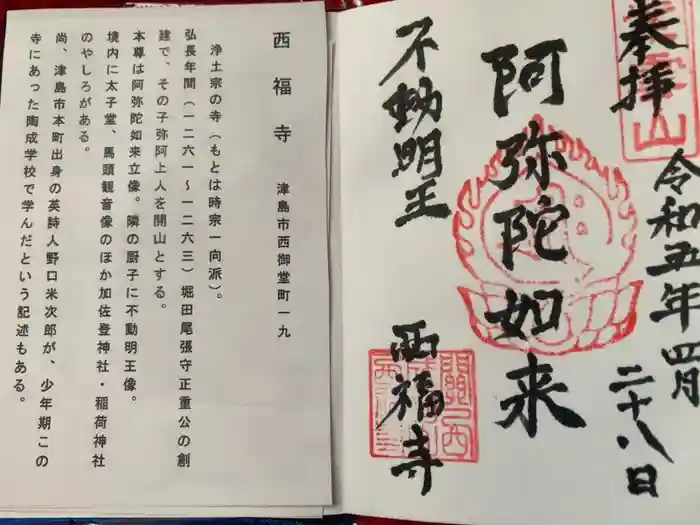 奉拝
令和五年四月
二十八日
阿弥陀如来
不動明王
西福寺
西福寺　津島市西御堂町一九
浄土宗の寺（もとは時宗一向派）。
弘長年間（一二六一〜一二六三）堀田尾張守正重公の創
建で、その子弥阿上人を開山とする。
本尊は阿弥陀如来立像。隣の厨子に不動明王像。
境内に太子堂、馬頭観音像のほか加佐登神社・稲荷神社
のやしろがある。
尚、津島市本町出身の英詩人野口米次郎が、少年期この
寺にあった陶成学校で学んだという記述もある。